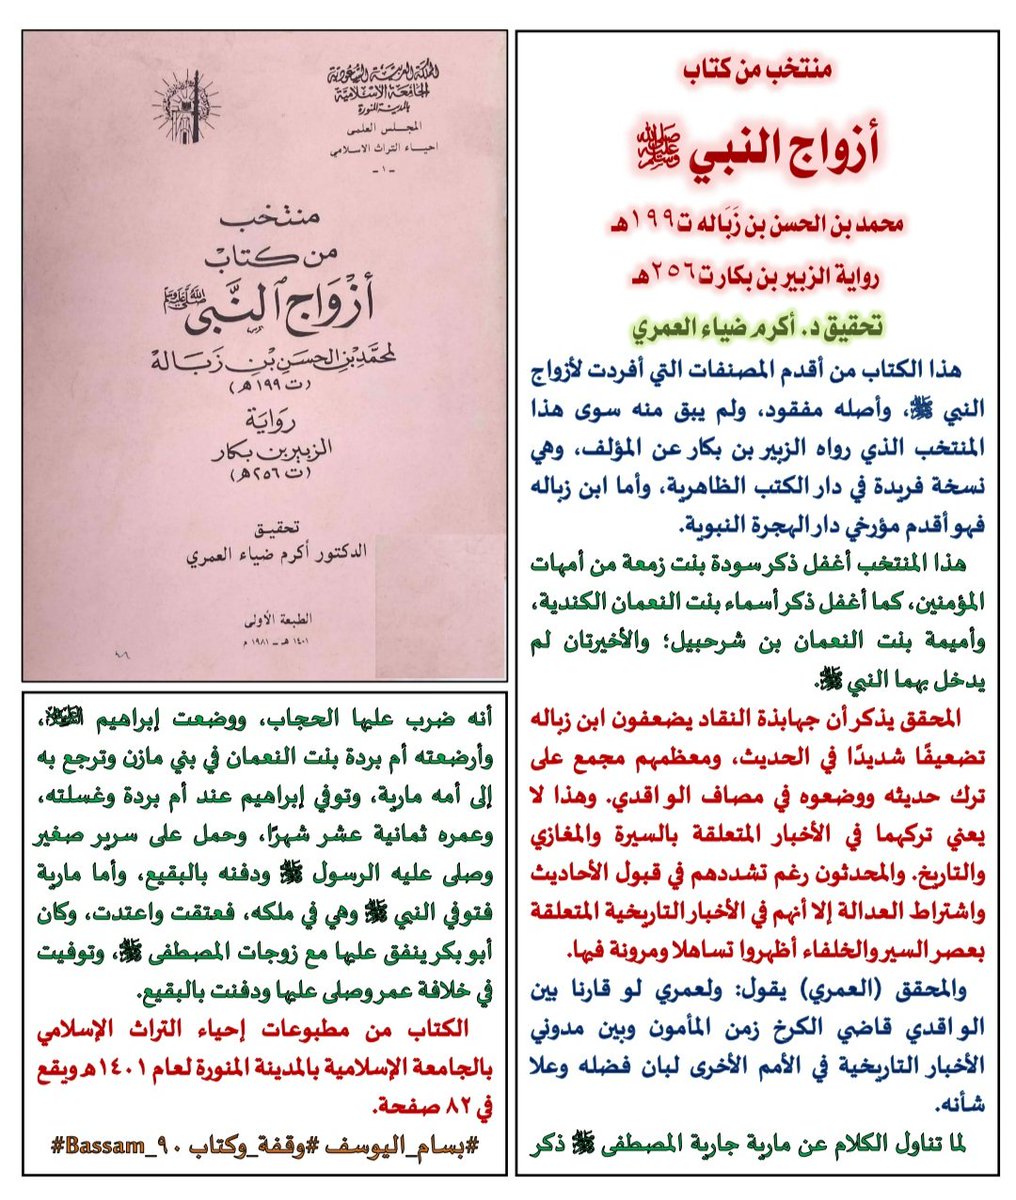 منتخب من كتاب
أزواج النبي ﷺ
محمد بن الحسن بن زَبَاله ت١٩٩هـ
رواية الزبير بن بكار ت٢٥٦هـ
تحقيق د. أكرم ضياء العمري
هذا الكتاب من أقدم المصنفات التي أفردت لأزواج
النبي ﷺ، وأصله مفقود، ولم يبق منه سوى هذا
المنتخب الذي رواه الزبير بن بكار عن المؤلف، وهي
نسخة فريدة في دار الكتب الظاهرية، وأما ابن زباله
فهو أقدم مؤرخي دار الهجرة النبوية.
هذا المنتخب أغفل ذكر سودة بنت زمعة من أمهات
المؤمنين، كما أغفل ذكر أسماء بنت النعمان الكندية،
وأميمة بنت النعمان بن شرحبيل؛ والأخيرتان لم
يدخل بهما النبي ﷺ.
المحقق يذكر أن جهابذة النقاد يضعفون ابن زباله
تضعيفًا شديدًا في الحديث، ومعظمهم مجمع على
ترك حديثه ووضعوه في مصاف الواقدي. وهذا لا
يعني تركهما في الأخبار المتعلقة بالسيرة والمغازي
والتاريخ. والمحدثون رغم تشددهم في قبول الأحاديث
واشتراط العدالة إلا أنهم في الأخبار التاريخية المتعلقة
بعصر السير والخلفاء أظهروا تساهلا ومرونة فيها.
والمحقق (العمري) يقول: ولعمري لو قارنا بين
الواقدي قاضي الكرخ زمن المأمون وبين مدوني
الأخبار التاريخية في الأمم الأخرى لبان فضله وعلا
شأنه.
لما تناول الكلام عن مارية جارية المصطفى ﷺ ذكر
المملكة العربية السعودية
الجامعة الإسلامية
بالمدينة المنورة
المجلس العلمي
احياء التراث الاسلامي
-١-
منتخب
من كتاب
أزواج النبي ﷺ
لمحمد بن الحسن بن زبالة
(ت ١٩٩ هـ)
رواية
الزبير بن بكار
(ت ٢٥٦ هـ)
تحقيق
الدكتور أكرم ضياء العمري
الطبعة الأولى
١٤٠١ هـ - ١٩٨١ م
أنه ضرب عليها الحجاب، ووضعت إبراهيم ،
وأرضعته أم بردة بنت النعمان في بني مازن وترجع به
إلى أمه مارية، وتوفي إبراهيم عند أم بردة وغسلته،
وعمره ثمانية عشر شهرًا، وحمل على سرير صغير
وصلى عليه الرسول ﷺ ودفنه بالبقيع، وأما مارية
فتوفي النبي ﷺ وهي في ملكه، فعتقت واعتدت، وكان
أبو بكر ينفق عليها مع زوجات المصطفى ﷺ، وتوفيت
في خلافة عمر وصلى عليها ودفنت بالبقيع.
الكتاب من مطبوعات إحياء التراث الإسلامي
بالجامعة الإسلامية بالمدينة المنورة لعام ١٤٠١هـ ويقع
في ٨٢ صفحة.
#بسام_اليوسف #وقفة_وكتاب Bassam_٩٠#